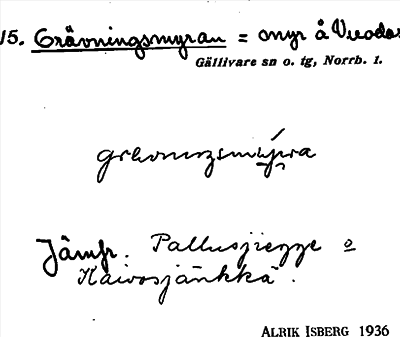 15. Grävningsmyran = myr å Vuodas
Gällivare sn o. tg, Norrb. l.
Jämfr. Pallusjiegge o
Kaivosjänkkä.
ALRIK ISBERG 1936